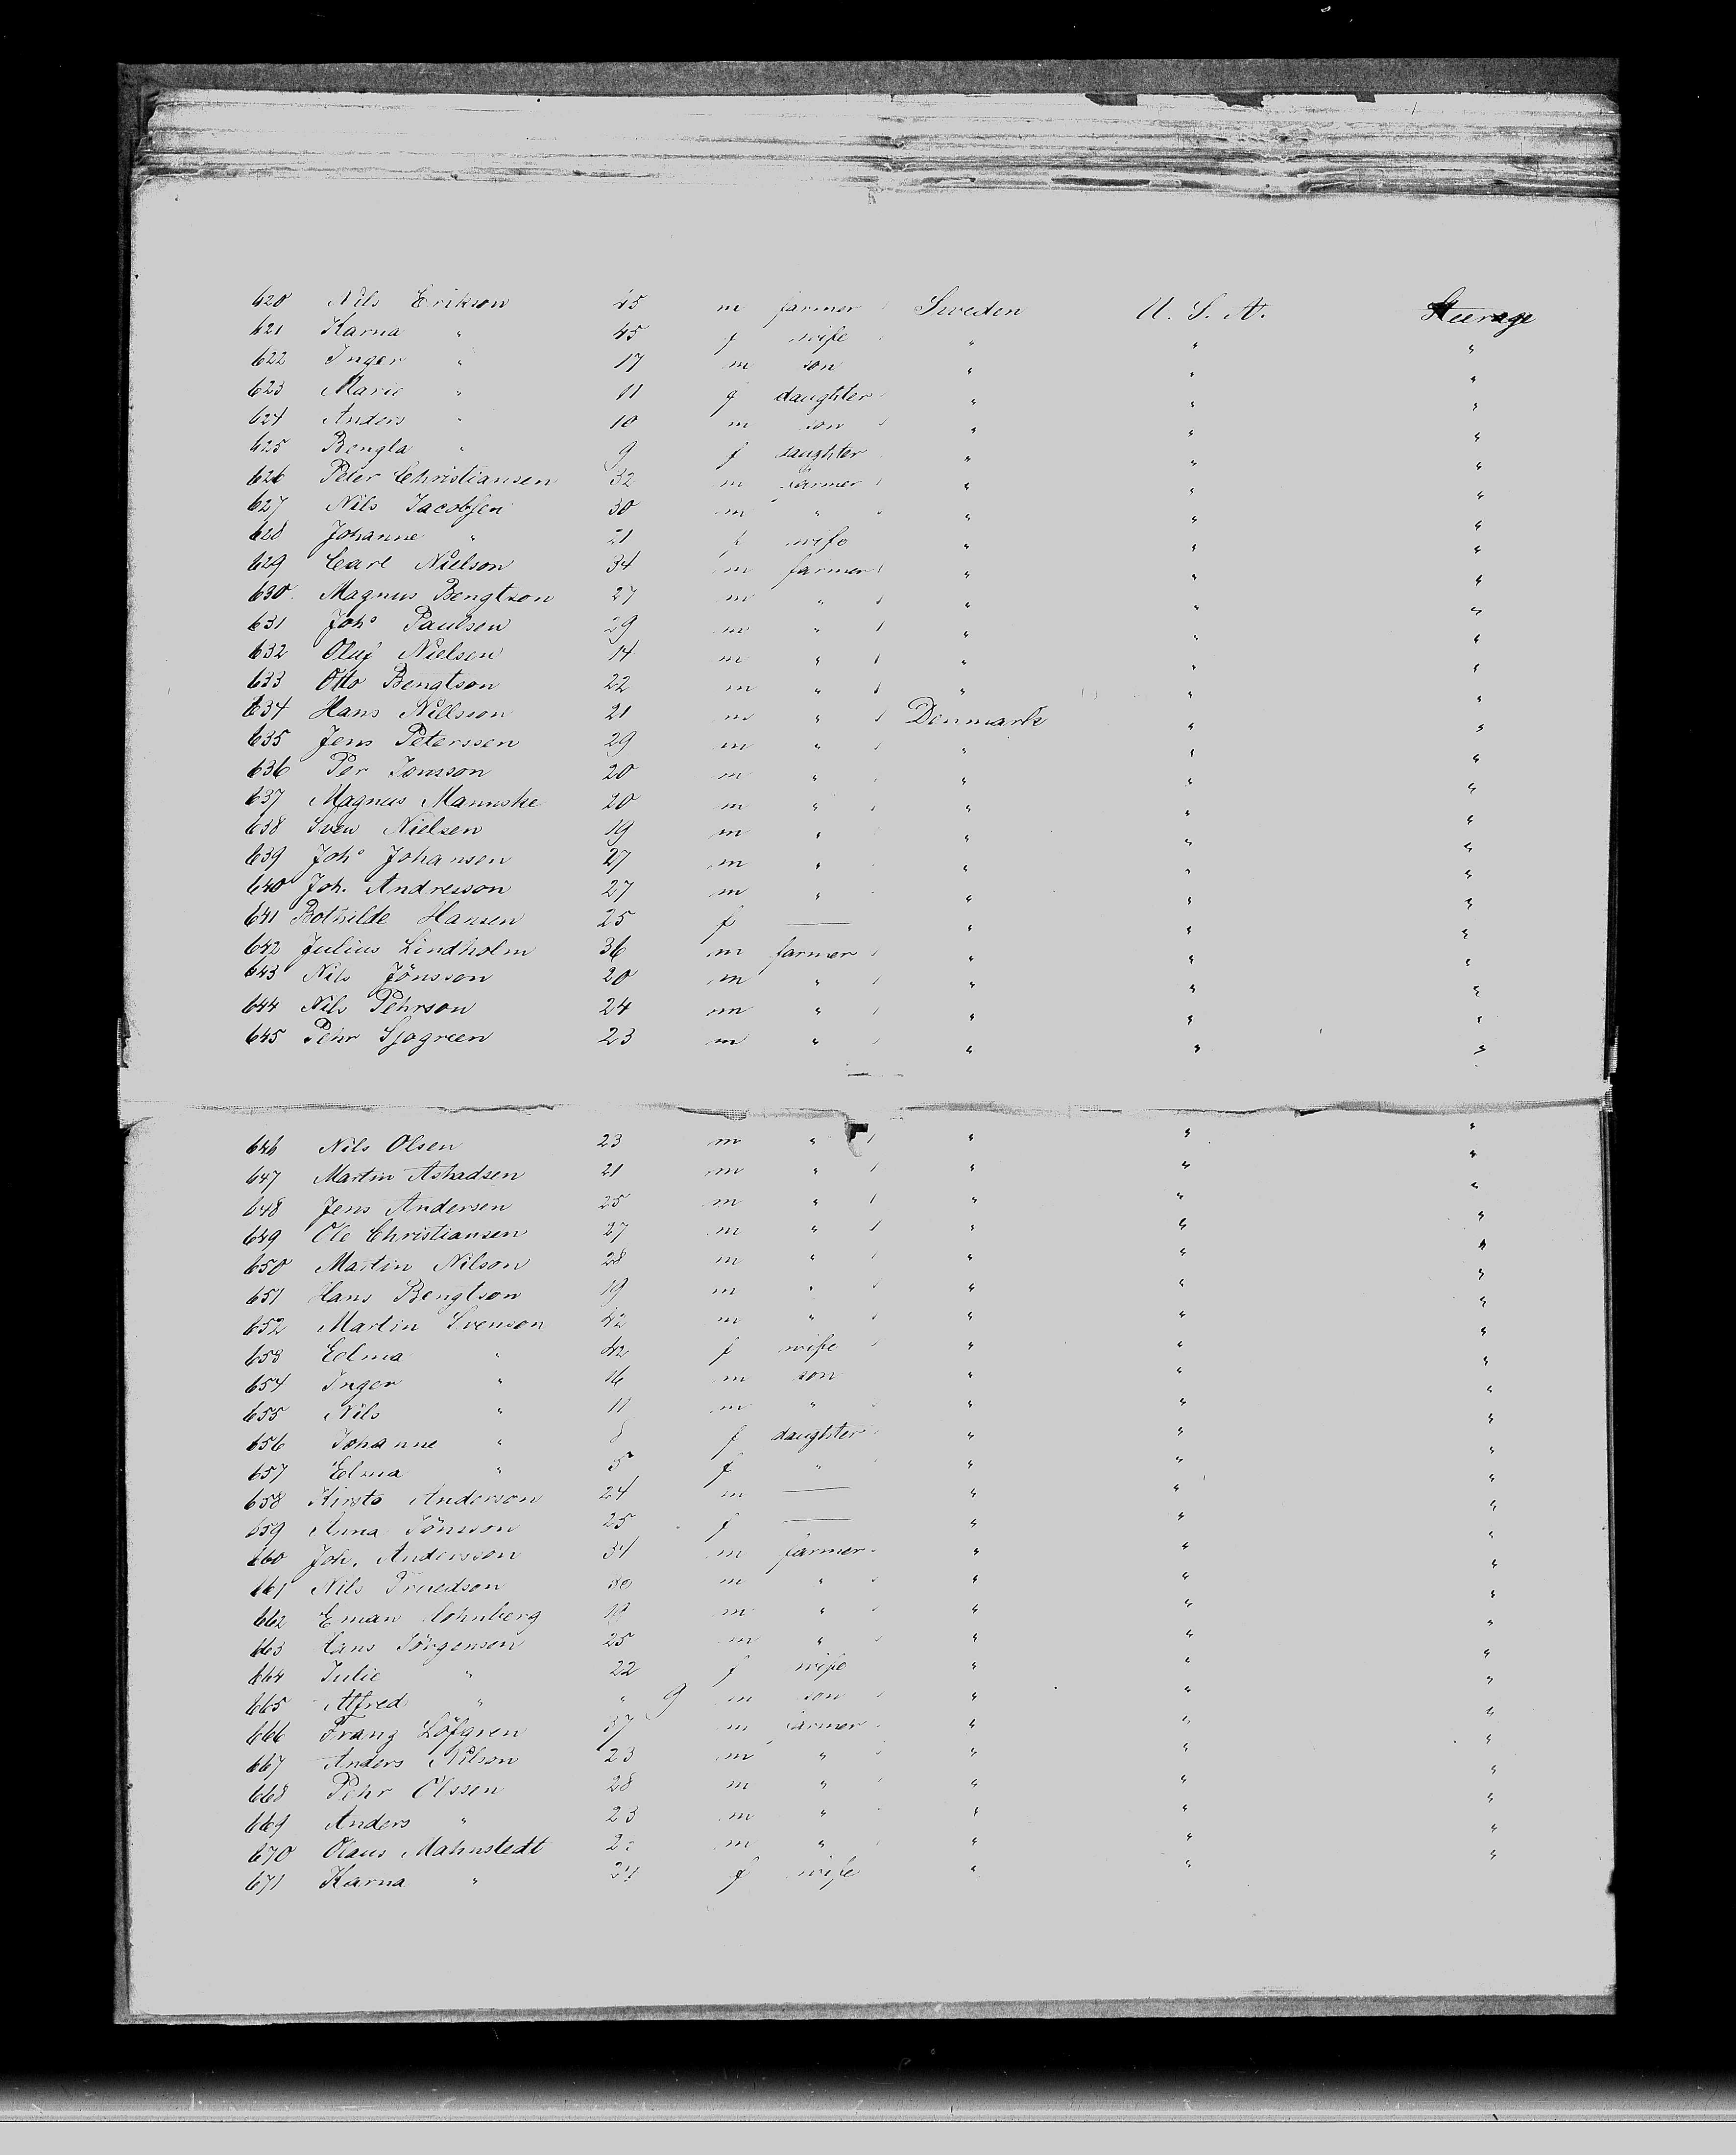 620 Nils Erikson 45 m farmer Sweden U. S. A. Steerage
621 Karna " 45 f wife " " "
622 Inger " 17 m son " " "
623 Marie " 11 f daughter " " "
624 Anders " 10 m son " " "
625 Bengta " 9 f daughter " " "
626 Peter Christiansen 32 m farmer " " "
627 Nils Jacobsen 30 m " " " "
628 Johanne " 21 f wife " " "
629 Carl Nielson 34 m farmer " " "
630 Magnus Bengtson 27 m " " " "
631 Joho Paulsen 29 m " " " "
632 Oluf Nielsen 14 m " " " "
633 Otto Bengtson 22 m " " " "
634 Hans Nillsson 21 m " Denmark " "
635 Jens Peterssen 29 m " " " "
636 Per Jonsson 20 m " " " "
637 Magnus Mannske 20 m " " " "
638 Sven Nielsen 19 m " " " "
639 Joho Johansen 27 m " " " "
640 Joh. Andresson 27 m " " " "
641 Bothilde Hansen 25 f — " " "
642 Julius Lindholm 36 m farmer " " "
643 Nils Jönsson 20 m " " " "
644 Nils Pehrson 24 m " " " "
645 Pehr Sjogreen 23 m " " " "
646 Nils Olsen 23 m " " " "
647 Martin Ashadsen 21 m " " " "
648 Jens Andersen 25 m " " " "
649 Ole Christiansen 27 m " " " "
650 Martin Nilson 28 m " " " "
651 Hans Bengtson 19 m " " " "
652 Martin Svenson 42 m " " " "
653 Elma " 42 f wife " " "
654 Inger " 16 m son " " "
655 Nils " 11 m " " " "
656 Johanne " 8 f daughter " " "
657 Elma " 5 f " " " "
658 Kirsto Anderson 24 m — " " "
659 Anna Jönsson 25 f — " " "
660 Joh. Andersson 34 m farmer " " "
661 Nils Truedson m " " " "
662 Eman 19 m " " " "
663 Hans Jörgensen 25 m " " " "
664 Julie " 22 f wife " " "
665 Alfred " " 9 m son " " "
666 Franz Löfgren 37 m farmer " " "
667 Anders Nilson 23 m " " " "
668 Pehr Olssen 28 m " " " "
669 Anders " 23 m " " " "
670 Olaus Mahnstedt m " " " "
671 Karna " 24 f wife " " "